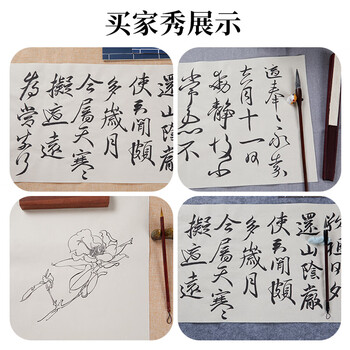 买家秀展示
還山陰嚴
使聞頗
多歲月
今屬天寒
擬適遠
為當
適奉永嘉
去月十一日
動靜故
常患不
還山陰嚴
使聞頗
多歲月
今屬天寒
擬適遠